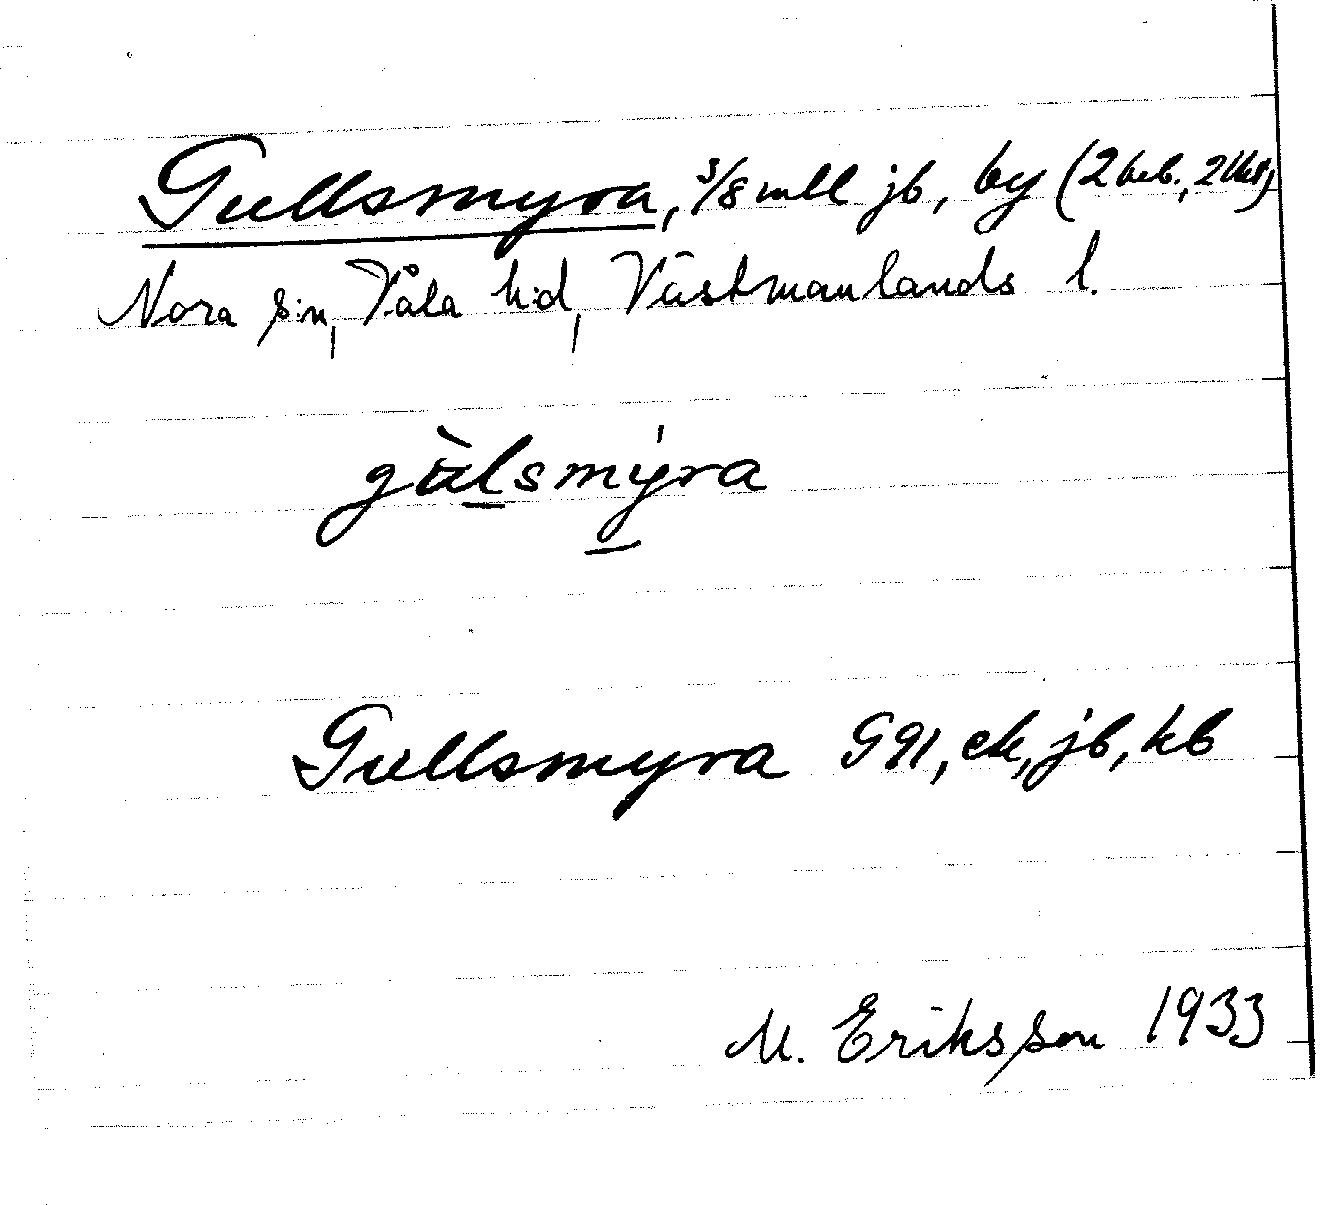 Gullsmyra, 3/8 mtl jb, by (2 beb.,
Nora s:n, Våla h:d, Västmanlands l.
gùlsmýra
Gullsmyra G91, ek, jb, kb
M. Eriksson 1933